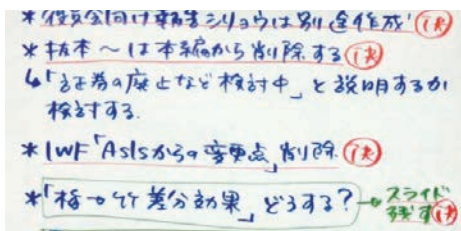 *役員会向け報告シリョウは別途作成 決
*抜本～は本編から削除する 決
↳「証券の廃止など検討中」と説明するか
検討する.
*IWF「AsIsからの変更点」削除 決
*「梅→竹 差分効果」どうする?→スライド
残す 決